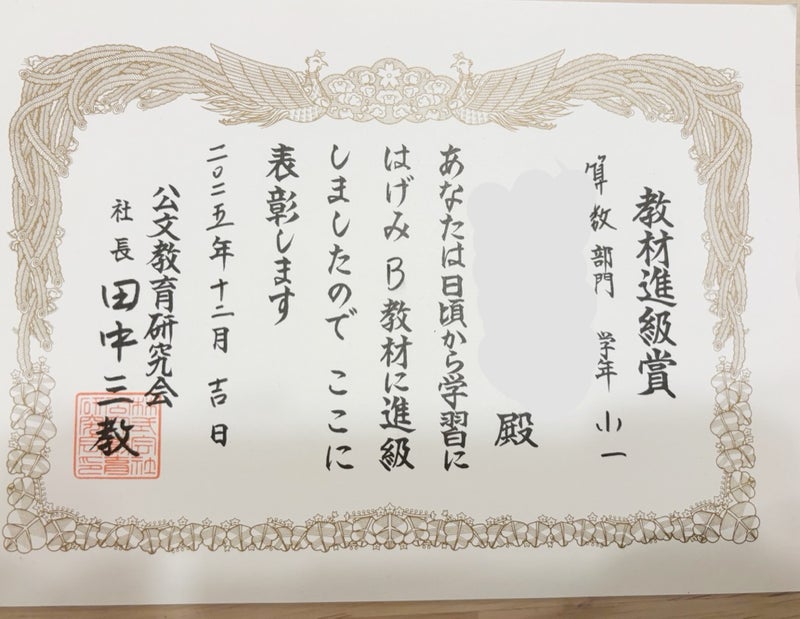 教材進級賞
算数部門 学年 小一
殿
あなたは日頃から学習に
はげみB教材に進級
しましたので ここに
表彰します
二〇二五年十二月 吉日
公文教育研究会
社長 田中三教